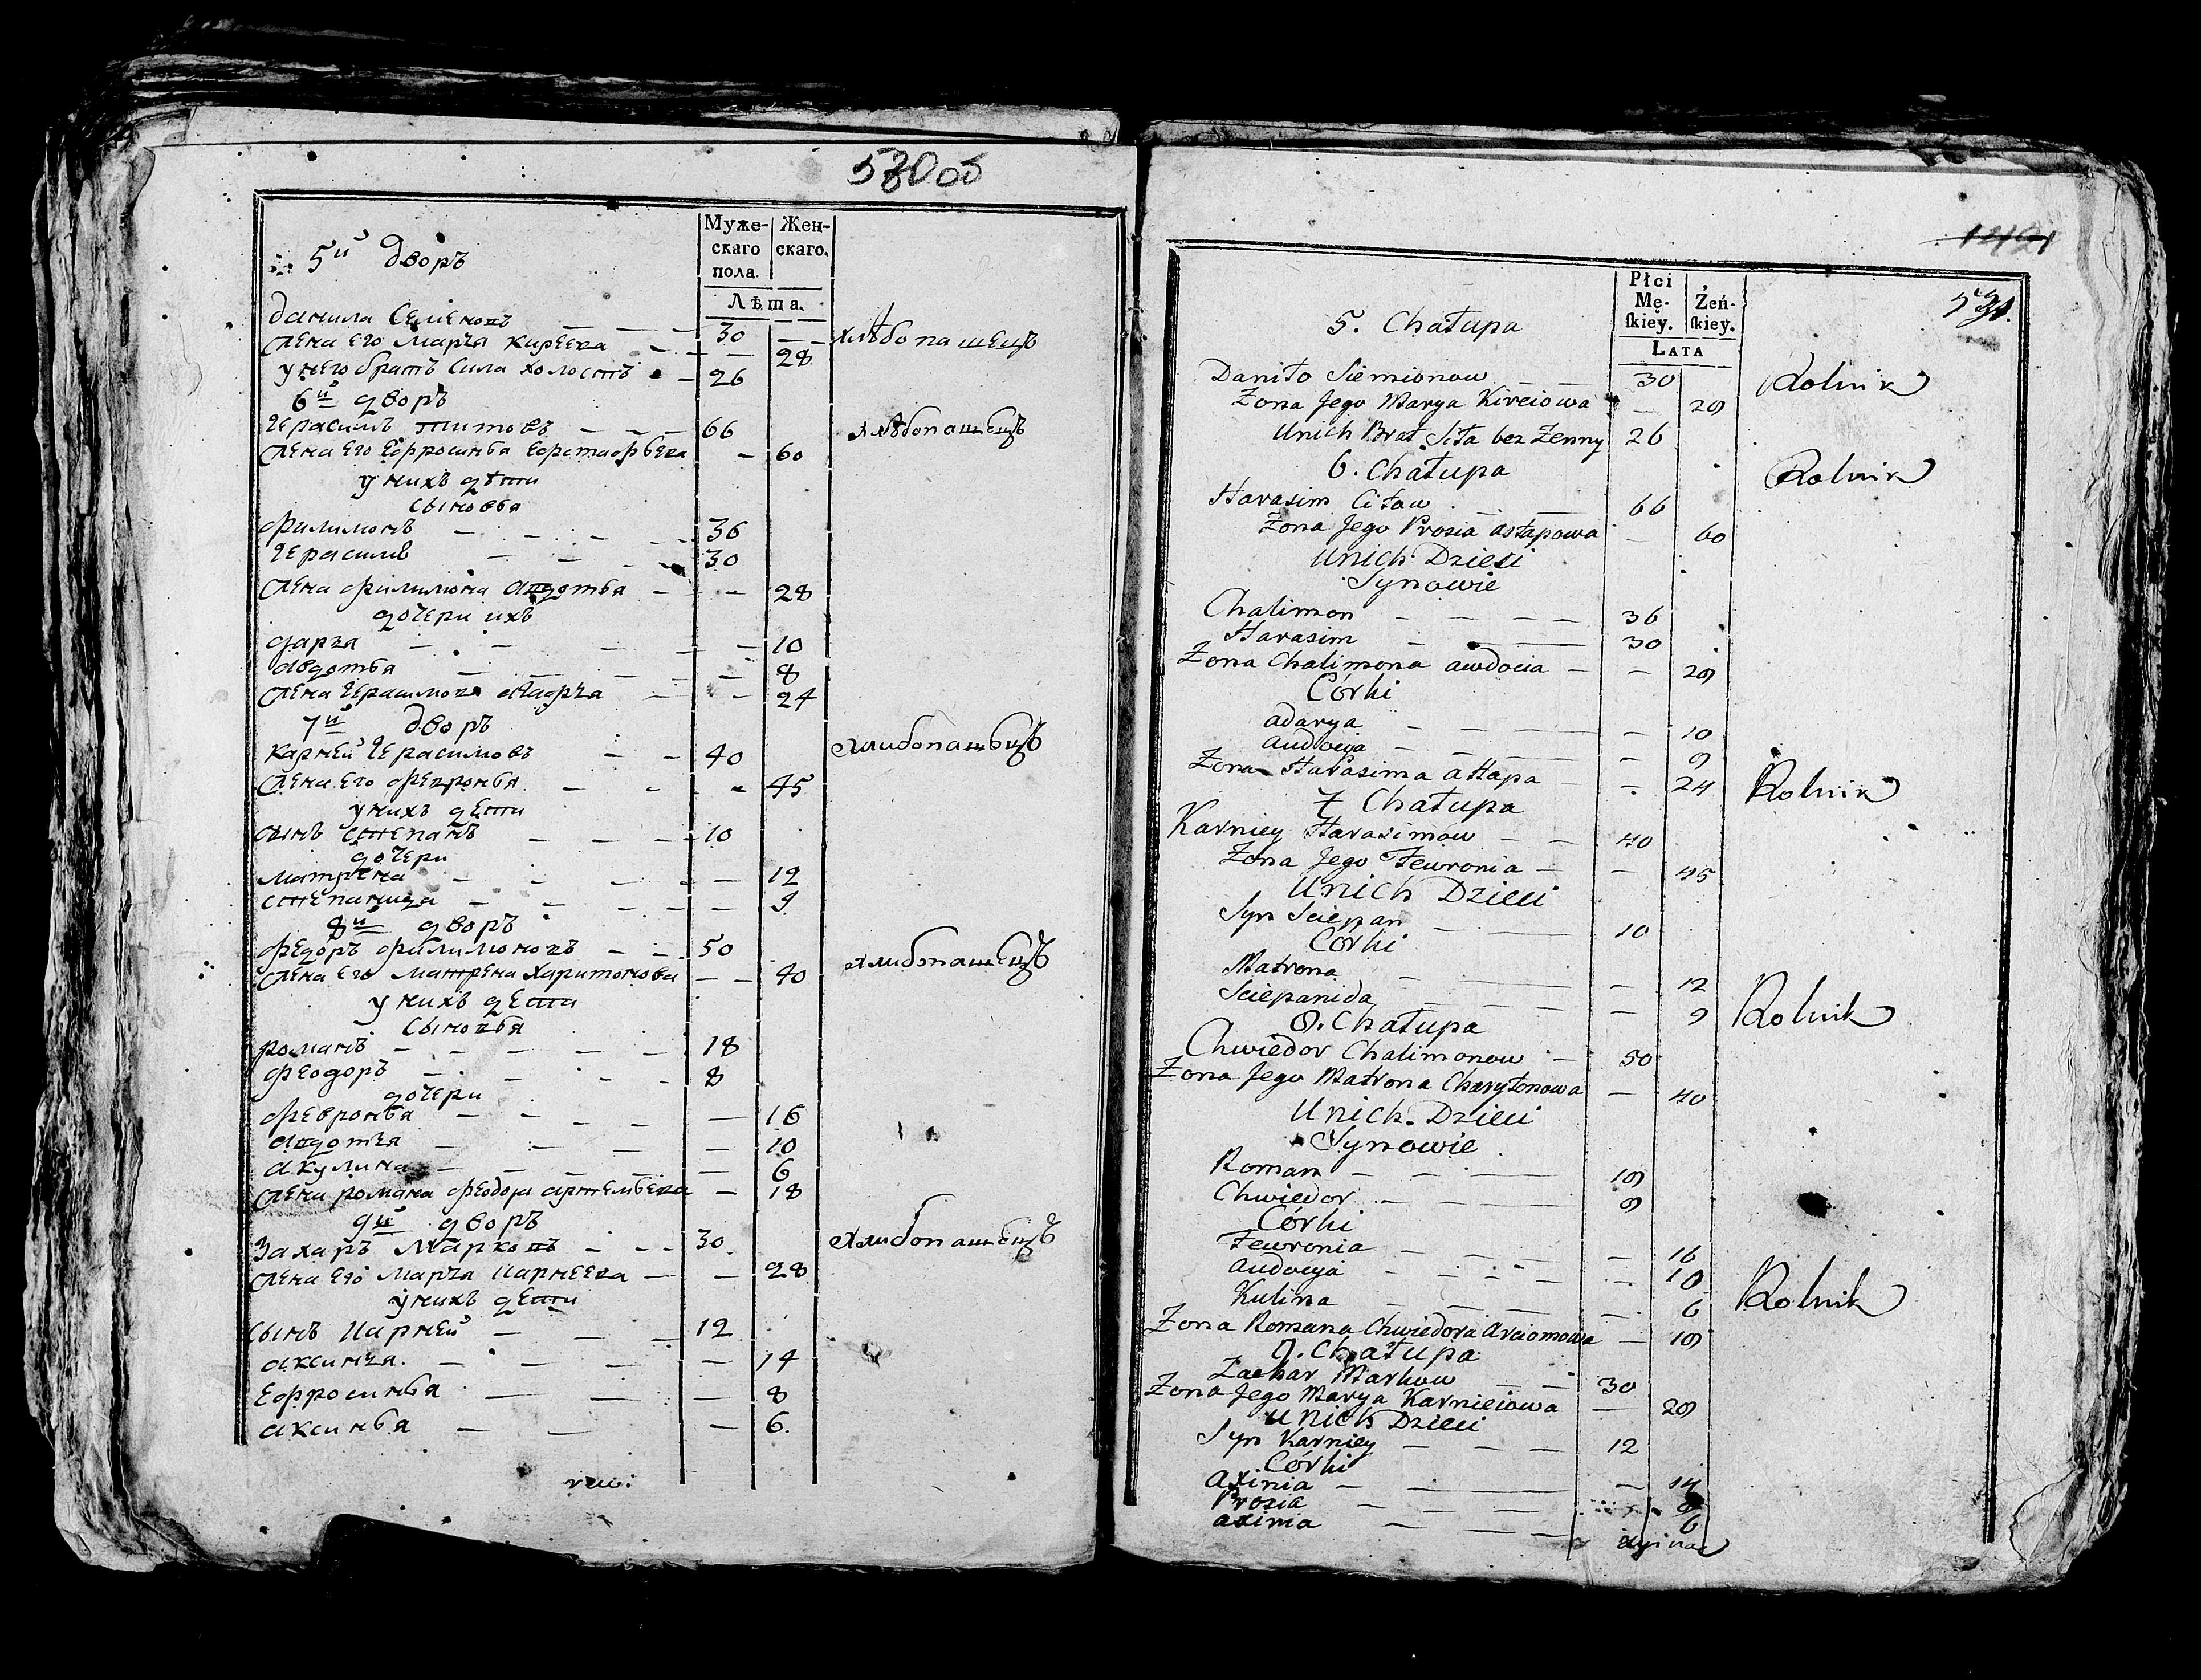 530об
Муже- Жен-
скаго скаго.
пола.
Лѣта.
5й дворъ
данила Семеновъ — — — 30 — — хлѣбопашецъ
жена его марья киреева — — — 28
у него братъ Сила холостъ — 26
6й дворъ
герасимъ титовъ — — — 66 хлѣбопашецъ
жена его ефросинья — 60
у нихъ дѣти
сыновья
филимонъ — — — 36
герасимъ — — — 30
жена филимона авдотья — — 28
дочери ихъ
дарья — — — — 10
авдотья — — — — 8
жена герасимова — — 24
7й дворъ
карней герасимовъ — — 40 хлибопашецъ
жена его февронья — — — 45
у нихъ дети
сынъ степанъ — — — 10
дочери
матрена — — — — 12
степанида — — — — 9
8й дворъ
федоръ филимоновъ — — 50 хлибопашецъ
жена его матрена харитонова — — 40
у нихъ дети
сыновья
романъ — — — — 18
феодоръ — — — — 8
дочери
февронья — — — — 16
авдотья — — — — 10
акулина — — — — 6
жена романа феодора артемьева — 18
9й дворъ
Захаръ Марковъ — — — 30 хлибопашецъ
жена его марья карнеева — — 28
у нихъ дети
сынъ карней — — — 12
аксинья — — — — 14
Ефросинья — — — — 8
аксинья — — — 6
1491
531.
Płci
Mę- Żeń-
skiey. skiey.
LATA
5. Chałupa
Daniło Siemionow — — 30 Rolnik
Zona Jego Marya Kireiowa — 28
Unich Brat Siła bez Zenny 26
6. Chałupa Rolnik
Harasim Citow — — 66
Zona Jego Prosia Astapowa — 60
Unich Dzieci
Synowie
Chalimon — — — — 36
Harasim — — — 30
Zona Chalimona awdocia — — 28
Córki
adarya — — — — 10
audocya — — — — 8
Zona Harasima aHapa — — 24
7 Chałupa Rolnik
Karniey Harasimow — — 40
Zona Jego Fewronia — — 45
Unich Dzieci
Syn Sciepan — — 10
Córki
Matrona — — — 12
Sciepanida — — — — 9
8. Chałupa Rolnik
Chwiedor Chalimonow — 50
Zona Jego Matrona Charytonowa — 40
Unich Dzieci
Synowie
Roman — — — 18
Chwiedor — — — 8
Córki
Fewronia — — — — 16
audocya — — — — 10
Kulina — — — — 6
Zona Romana Chwiedora Arciomowa — 18
9. Chałupa Rolnik
Zachar Markow — — 30
Zona Jego Marya Karnieiowa — 28
Unich Dzieci
Syn Karniey — — — 12
Córki
Axinia — — — — 14
Prosia — — — 8
axinia — — — 6